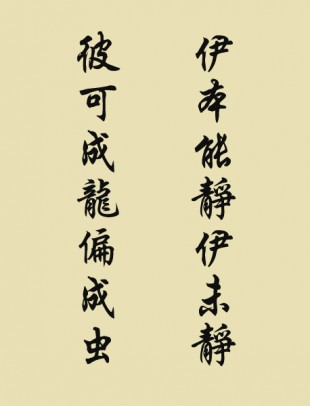 伊本能靜伊未靜
彼可成龍偏成虫